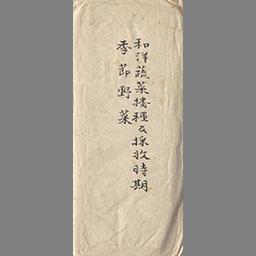 和洋蔬菜播種及採收時期
季節野菜